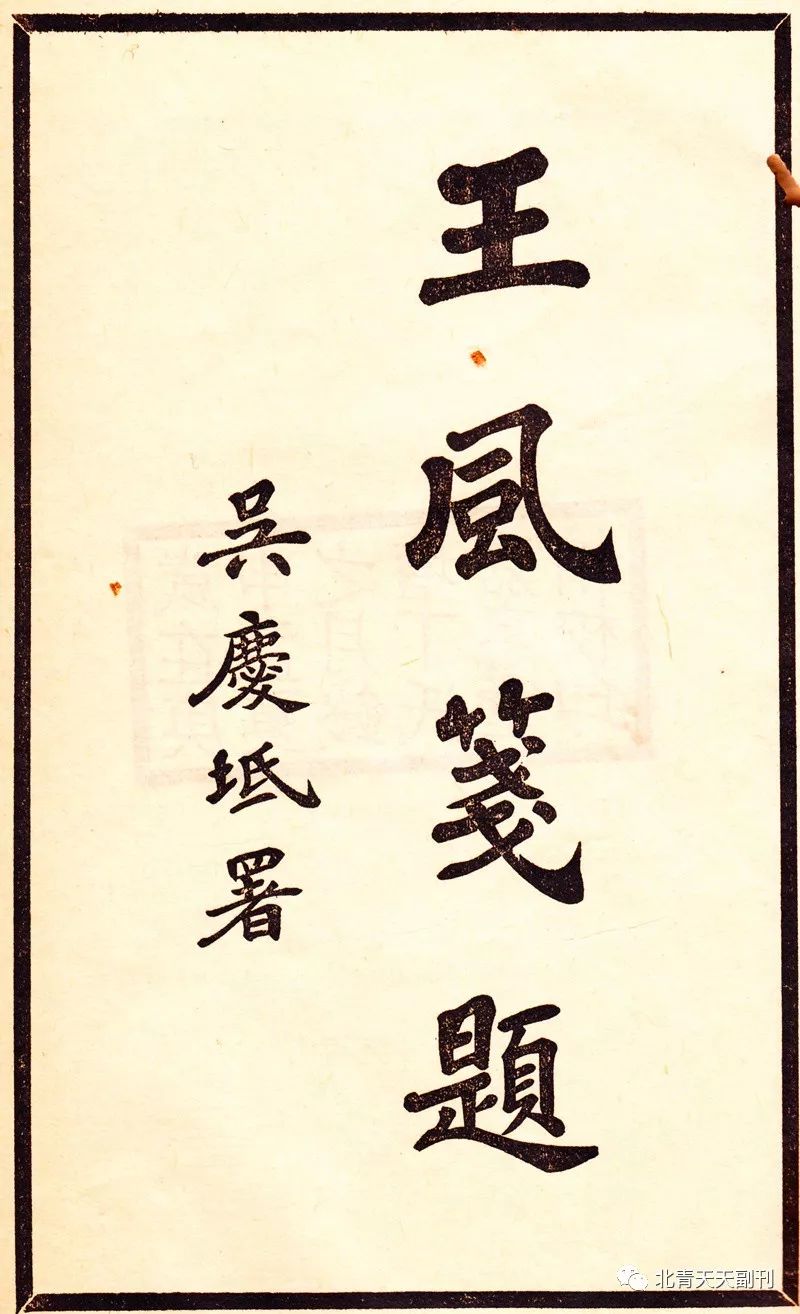 王風箋題
吳慶坻署
北青天天副刊